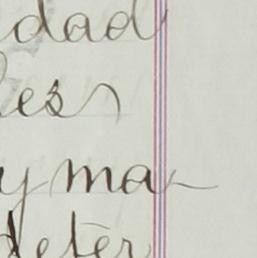 dad
es
y ma-
deter